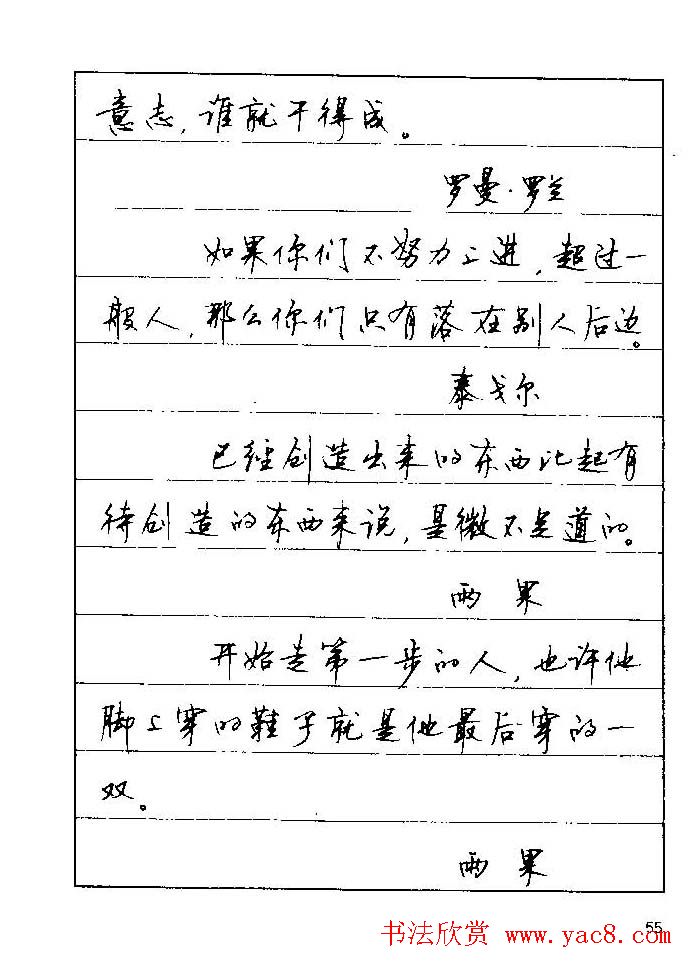 意志，谁就干得成。
罗曼·罗兰
如果你们不努力上进，超过一
般人，那么你们只有落在别人后边。
泰戈尔
已经创造出来的东西比起有
待创造的东西来说，是微不足道的。
雨果
开始走第一步的人，也许他
脚上穿的鞋子就是他最后穿的一
双。
雨果
55
书法欣赏 www.yac8.com